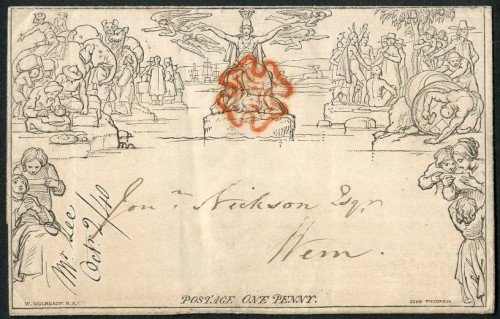 Jonⁿ Nickson Esqr
Wem.
Mr Lee
Octr 9/40
W. MULREADY. R.A.
POSTAGE ONE PENNY.
JOHN THOMPSON.